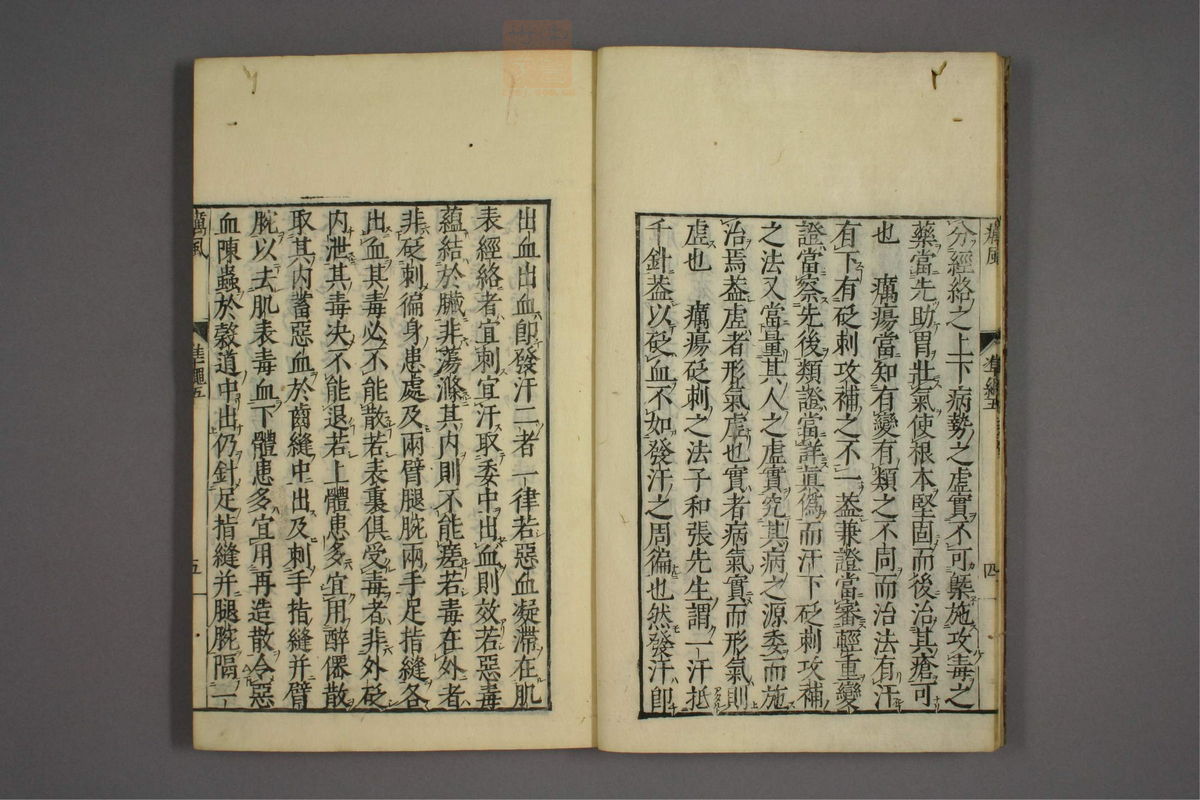 癘風
準繩五
四
分經絡之上下病勢之虛實不可槩施攻毒之
藥當先助胃壯氣使根本堅固而後治其瘡可
也　癘瘍當知有變有類之不同而治法有汗
有下有砭刺攻補之不一葢兼證當審輕重變
證當察先後類證當詳眞僞而汗下砭刺攻補
之法又當量其人之虛實究其病之源委而施
治焉葢虛者形氣虛也實者病氣實而形氣則
虛也　癘瘍砭刺之法子和張先生謂一汗抵
千針葢以砭血不如發汗之周徧也然發汗卽
出血出血卽發汗二者一律若惡血凝滯在肌
表經絡者宜刺宜汗取委中出血則效若惡毒
蘊結於臟非蕩滌其内則不能瘥若毒在外者
非砭刺徧身患處及兩臂腿腕兩手足指縫各
出血其毒必不能散若表裏俱受毒者非外砭
内泄其毒决不能退若上體患多宜用醉僊散
取其内蓄惡血於齒縫中出及刺手指縫并臂
腕以去肌表毒血下體患多宜用再造散令惡
血陳蟲於穀道中出仍針足指縫并腿腕隔一
癘風
準繩五
五